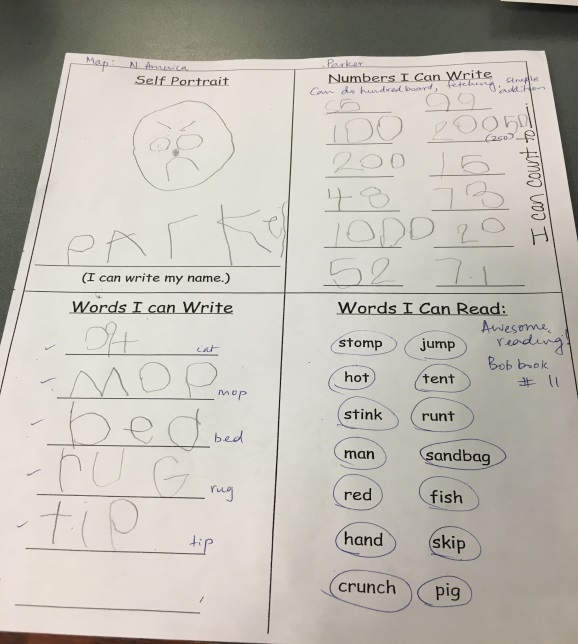 Map: N. America
Parker
Self Portrait
PArKer
(I can write my name.)
Numbers I Can Write
Can do hundred board, fetching, simple addition
99
100
20050
(250)
200
15
48
73
1000
20
52
71
I can count to
Words I can Write
cat
MOP
mop
bed
bed
rUG
rug
tip
tip
Words I Can Read:
stomp jump
hot tent
stink runt
man sandbag
red fish
hand skip
crunch pig
Awesome
reading!
Bob book
# 11